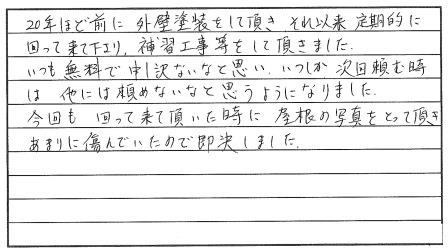 20年ほど前に 外壁塗装をして頂き それ以来 定期的に
回って来て下より, 補習工事等をして頂きました.
いつも無料で申し訳ないなと思い. いつしか 次回頼む時
は 他には頼めないなと思うようになりました.
今回も 回って来て頂いた時に 屋根の写真をとって頂き
あまりに傷んでいたので即決しました.